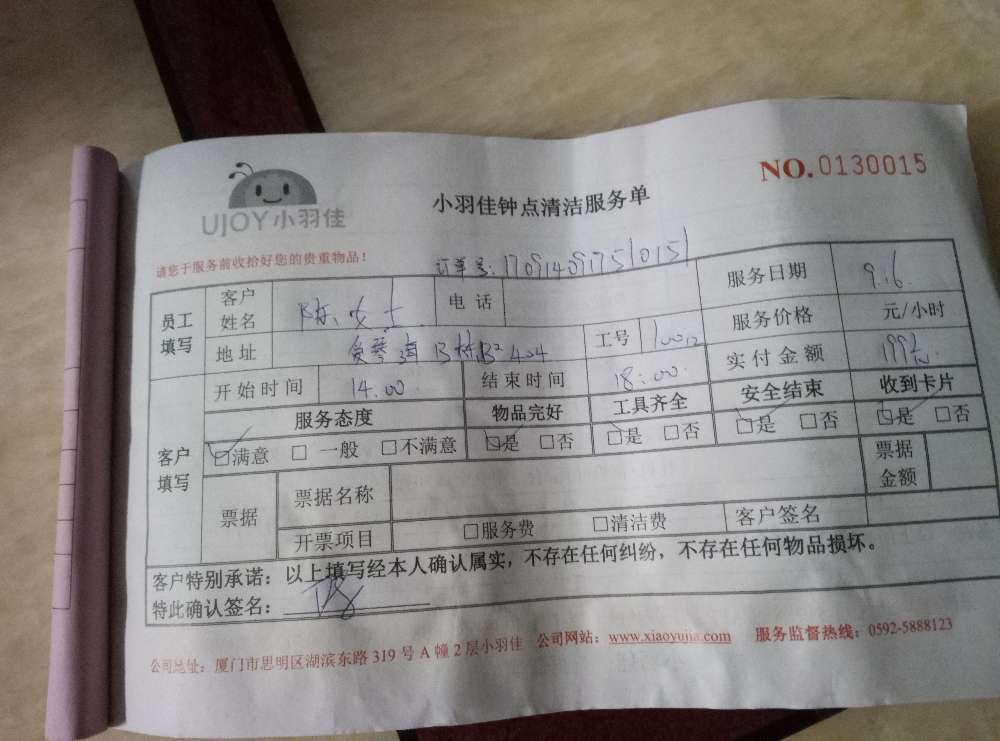 UJOY小羽佳
小羽佳钟点清洁服务单
NO.0130015
请您于服务前收拾好您的贵重物品！
订单号:
员工填写
客户姓名 陈女士 电话 服务日期 9.16.
地址 B栋B²404 工号 服务价格 元/小时
实付金额 199元
开始时间 14.00 结束时间 18:00
服务态度 物品完好 工具齐全 安全结束 收到卡片
客户填写
□满意 □ 一般 □不满意 □是 □否 □是 □否 □是 □否 □是 □否
票据 票据名称 票据金额
开票项目 □服务费 □清洁费 客户签名
客户特别承诺：以上填写经本人确认属实，不存在任何纠纷，不存在任何物品损坏。
特此确认签名：
公司地址：厦门市思明区湖滨东路 319 号 A 幢 2 层小羽佳 公司网站：www.xiaoyujia.com 服务监督热线：0592-5888123